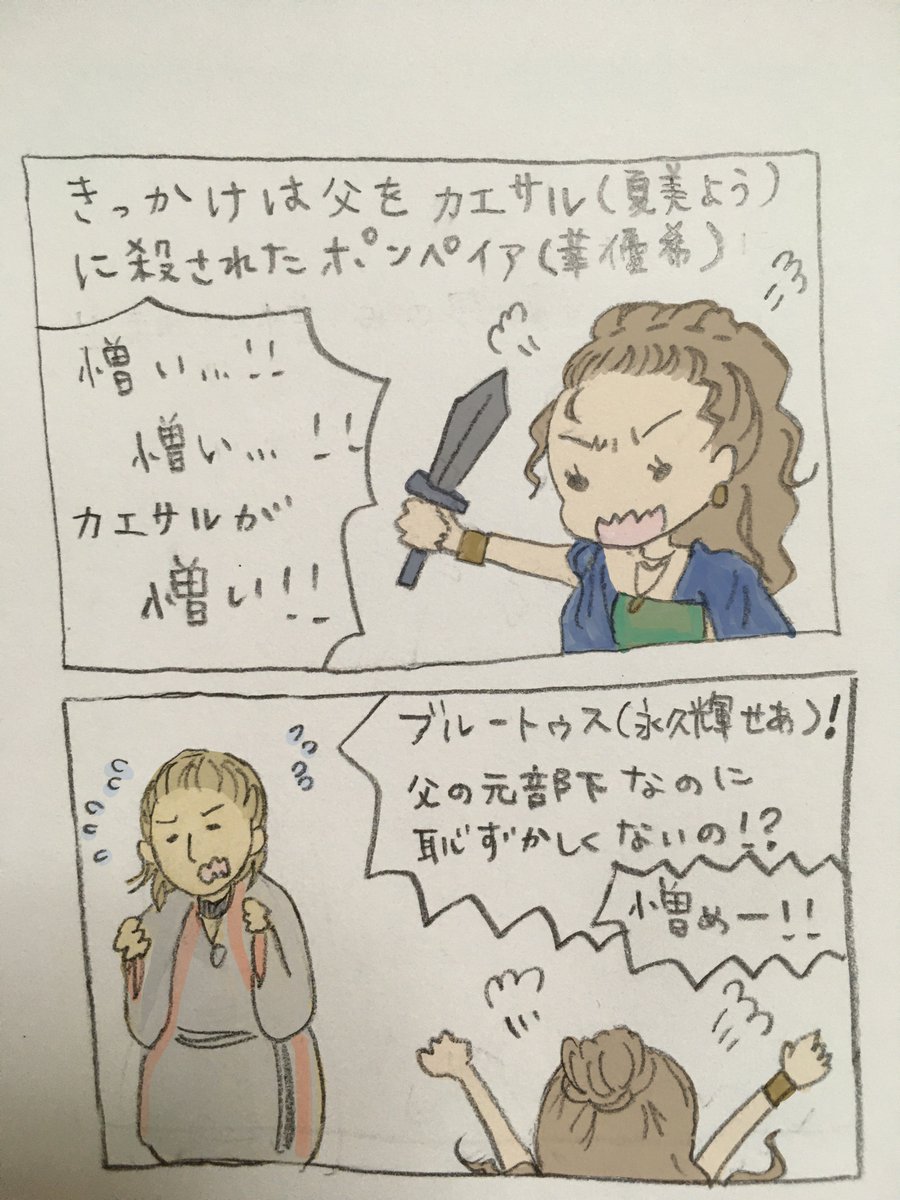 きっかけは父をカエサル(夏美よう)
に殺されたポンペイア(華優希)
憎い…!!
憎い…!!
カエサルが
憎い!!
ブルートゥス(永久輝せあ)!
父の元部下なのに
恥ずかしくないの!?
憎めー!!